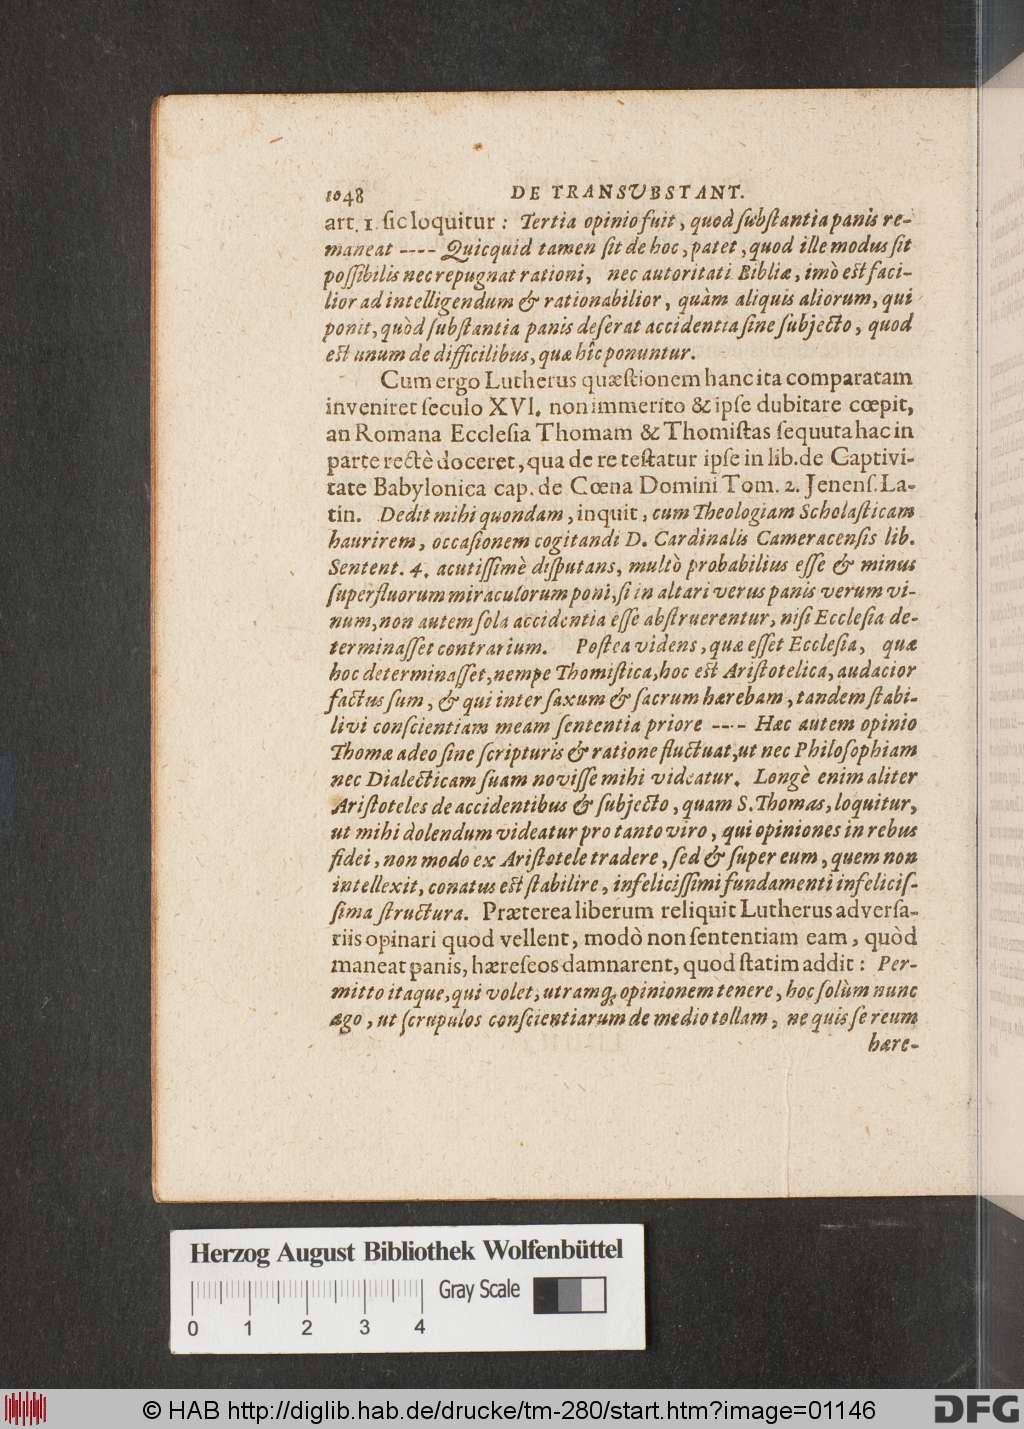 1048 DE TRANSUBSTANT.
art. 1. ſic loquitur: Tertia opinio fuit, quod ſubſtantia panis re-
maneat ---- Quicquid tamen ſit de hoc, patet, quod ille modus ſit
poſſibilis nec repugnat rationi, nec autoritati Bibliæ, imò eſt faci-
lior ad intelligendum & rationabilior, quàm aliquis aliorum, qui
ponit, quòd ſubſtantia panis deſerat accidentia ſine ſubjecto, quod
eſt unum de difficilibus, quæ hîc ponuntur.
Cum ergo Lutherus quæſtionem hanc ita comparatam
inveniret ſeculo XVI. non immerito & ipſe dubitare cœpit,
an Romana Eccleſia Thomam & Thomiſtas ſequuta hac in
parte rectè doceret, qua de re teſtatur ipſe in lib. de Captivi-
tate Babylonica cap. de Cœna Domini Tom. 2. Jenenſ. La-
tin. Dedit mihi quondam, inquit, cum Theologiam Scholaſticam
haurirem, occaſionem cogitandi D. Cardinalis Cameracenſis lib.
Sentent. 4. acutiſſimè diſputans, multò probabilius eſſe & minus
ſuperfluorum miraculorum poni, ſi in altari verus panis verum vi-
num, non autem ſola accidentia eſſe abſtruerentur, niſi Eccleſia de-
terminaſſet contrarium. Poſtea videns, quæ eſſet Eccleſia, quæ
hoc determinaſſet, nempe Thomiſtica, hoc eſt Ariſtotelica, audacior
factus ſum, & qui inter ſaxum & ſacrum hærebam, tandem ſtabi-
livi conſcientiam meam ſententia priore ---- Hæc autem opinio
Thomæ adeo ſine ſcripturis & ratione fluctuat, ut nec Philoſophiam
nec Dialecticam ſuam noviſſe mihi videatur. Longè enim aliter
Ariſtoteles de accidentibus & ſubjecto, quam S. Thomas, loquitur,
ut mihi dolendum videatur pro tanto viro, qui opiniones in rebus
fidei, non modo ex Ariſtotele tradere, ſed & ſuper eum, quem non
intellexit, conatus eſt ſtabilire, infeliciſſimi fundamenti infeliciſ-
ſima ſtructura. Præterea liberum reliquit Lutherus adverſa-
riis opinari quod vellent, modò non ſententiam eam, quòd
maneat panis, hæreſeos damnarent, quod ſtatim addit: Per-
mitto itaque, qui volet, utramq; opinionem tenere, hoc ſolùm nunc
ago, ut ſcrupulos conſcientiarum de medio tollam, ne quis ſe reum
hære-
Herzog August Bibliothek Wolfenbüttel
Gray Scale
0 1 2 3 4
© HAB http://diglib.hab.de/drucke/tm-280/start.htm?image=01146
DFG